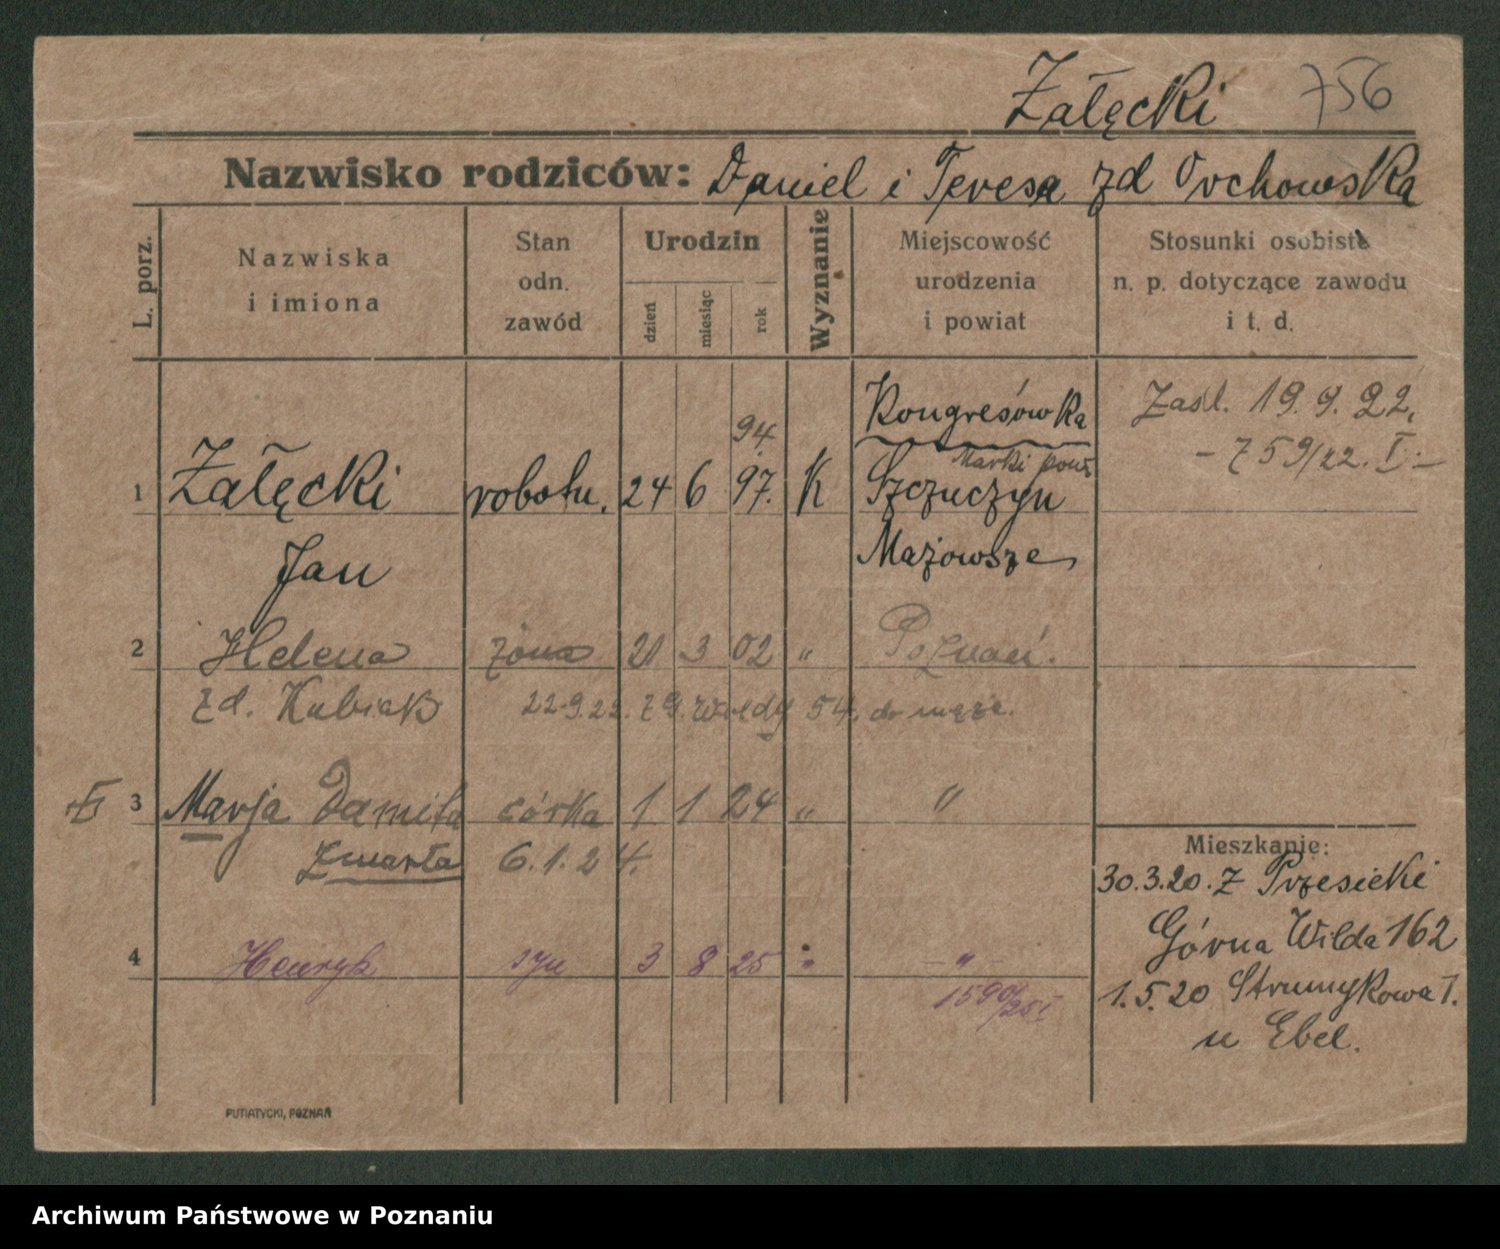 Załęcki 756
Nazwisko rodziców: Daniel i Teresa zd Orchowska
L. porz.
Nazwiska
i imiona
Stan
odn.
zawód
Urodzin
dzień
miesiąc
rok
Wyznanie
Miejscowość
urodzenia
i powiat
Stosunki osobiste
n. p. dotyczące zawodu
i t. d.
Kongresówka
Zaśl. 19.9.22.
94.
- 759/22. I. -
Marki pow.
1 Załęcki robotn. 24 6 97. K Szczuczyn
Jan Mazowsze
2 Helena żona 21 3 02 " Poznań.
zd. Kubiak 22.9.22. z G. Wildy 54 do męża.
3 Marja Danuta córka 1 1 24 " "
zmarła 6.1.24.
Mieszkanie:
30.3.20. z Przesieki
Górna Wilda 162
4 Henryk syn 3 8 25 " - " -
1590/25 I
1.5.20 Strumykowa 1.
u Ebel.
PUTIATYCKI, POZNAŃ
Archiwum Państwowe w Poznaniu